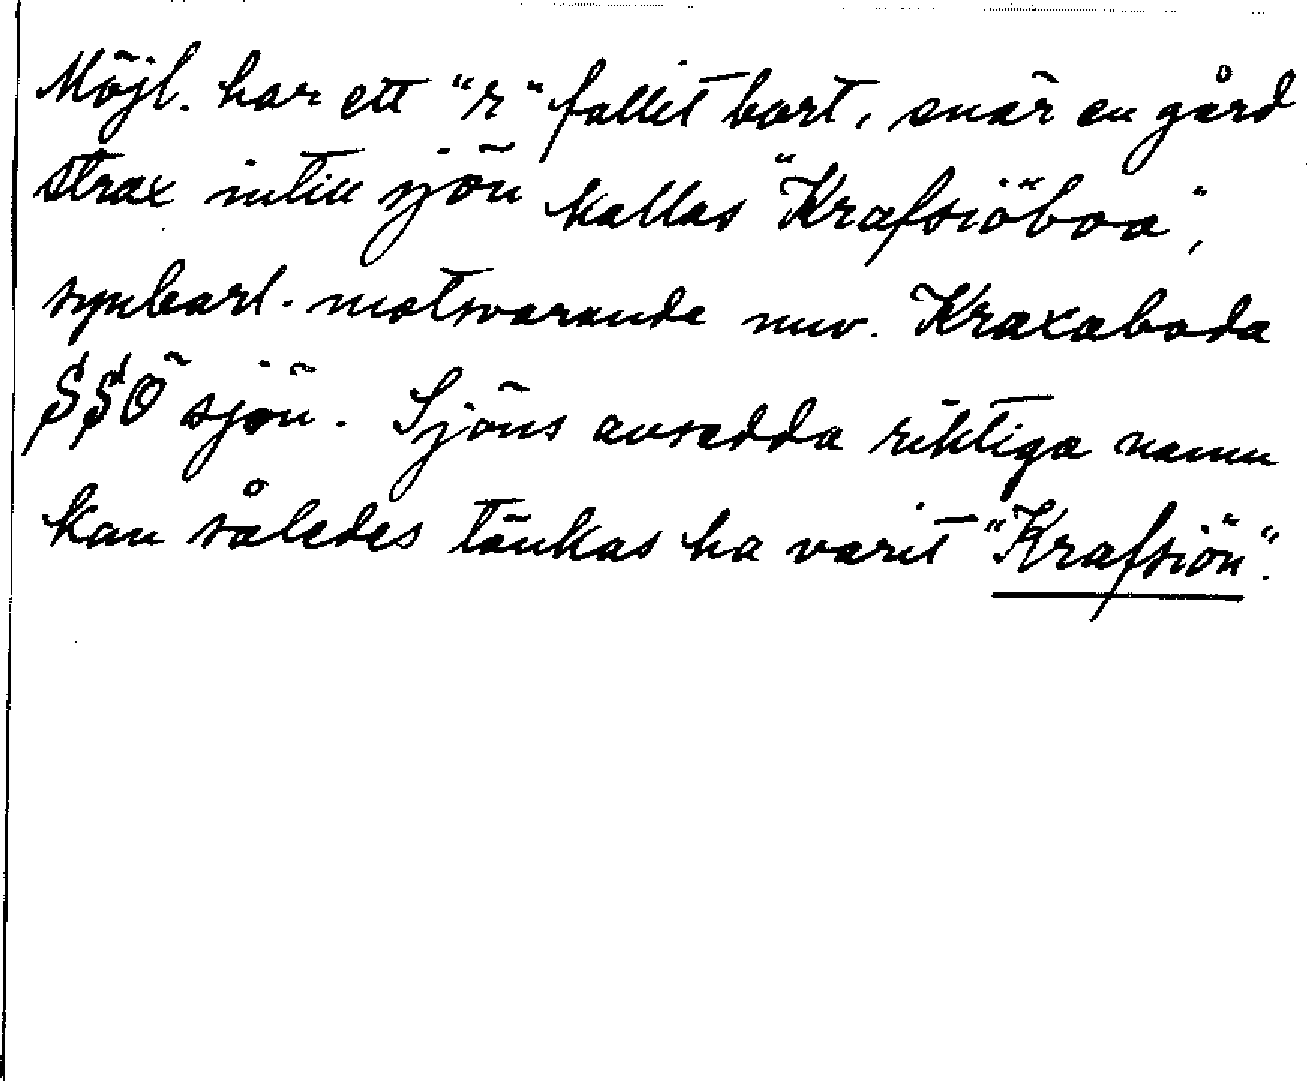 Möjl. har ett "r" fallit bort, enär en gård
strax intill sjön kallas "Krafsiöboa",
synbarl. motsvarande nuv. Kraxaboda
SSÖ sjön. Sjöns avsedda riktiga namn
kan således tänkas ha varit "Krafsiön".